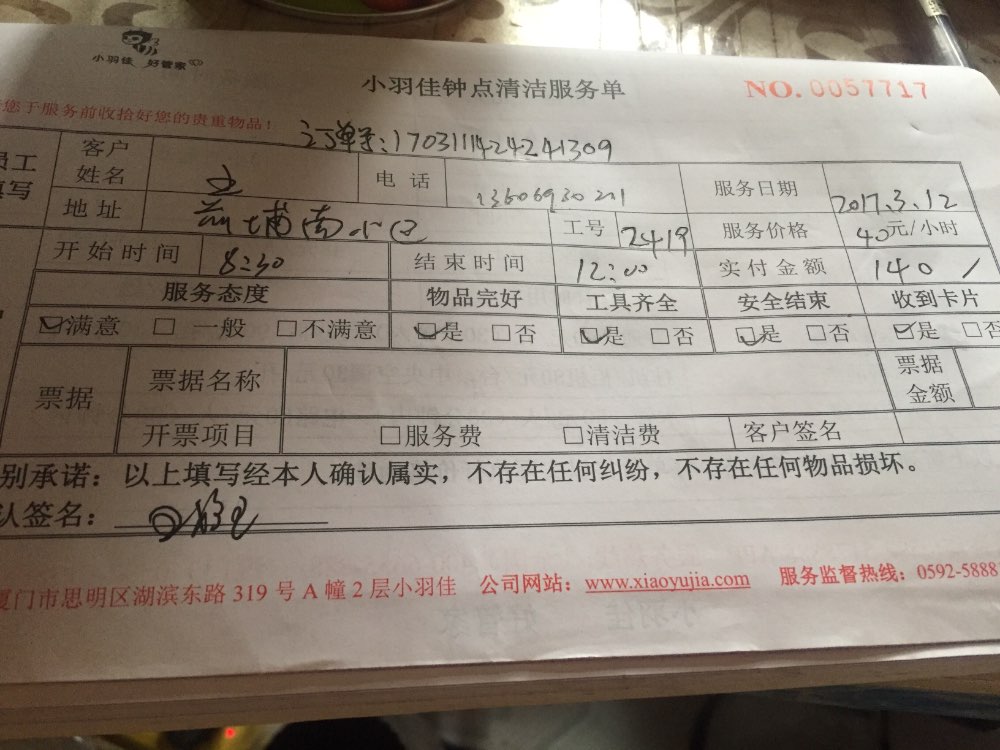 小羽佳 好管家
小羽佳钟点清洁服务单
NO.0057717
您于服务前收拾好您的贵重物品！
订单号：1703111424241309
员工填写
客户姓名
电话
服务日期 2017.3.12
地址 南小区
工号 2419
服务价格 40元/小时
开始时间 8:30
结束时间 12:00
实付金额 140 /
服务态度 物品完好 工具齐全 安全结束 收到卡片
☑满意 □一般 □不满意 ☑是 □否 ☑是 □否 ☑是 □否 ☑是 □否
票据 票据名称 票据金额
开票项目 □服务费 □清洁费 客户签名
别承诺：以上填写经本人确认属实，不存在任何纠纷，不存在任何物品损坏。
认签名：
厦门市思明区湖滨东路319号A幢2层小羽佳 公司网站：www.xiaoyujia.com 服务监督热线：0592-5888